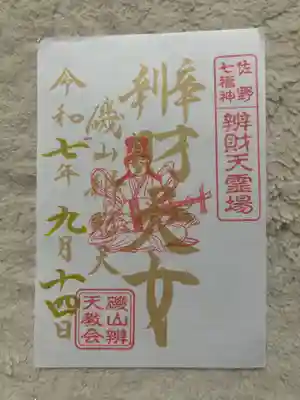 佐野
七福神
辨財天霊場
辨財天女
磯山 天
令和七年九月十四日
磯山辨
天教会